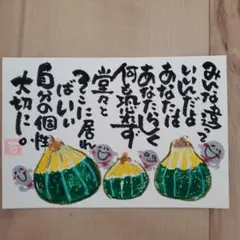 みんな違って
いいんだよ
あなたは
あなたらしく
何も恐れず
堂々と
そこに居れ
ばいい
自分の個性
大切に。